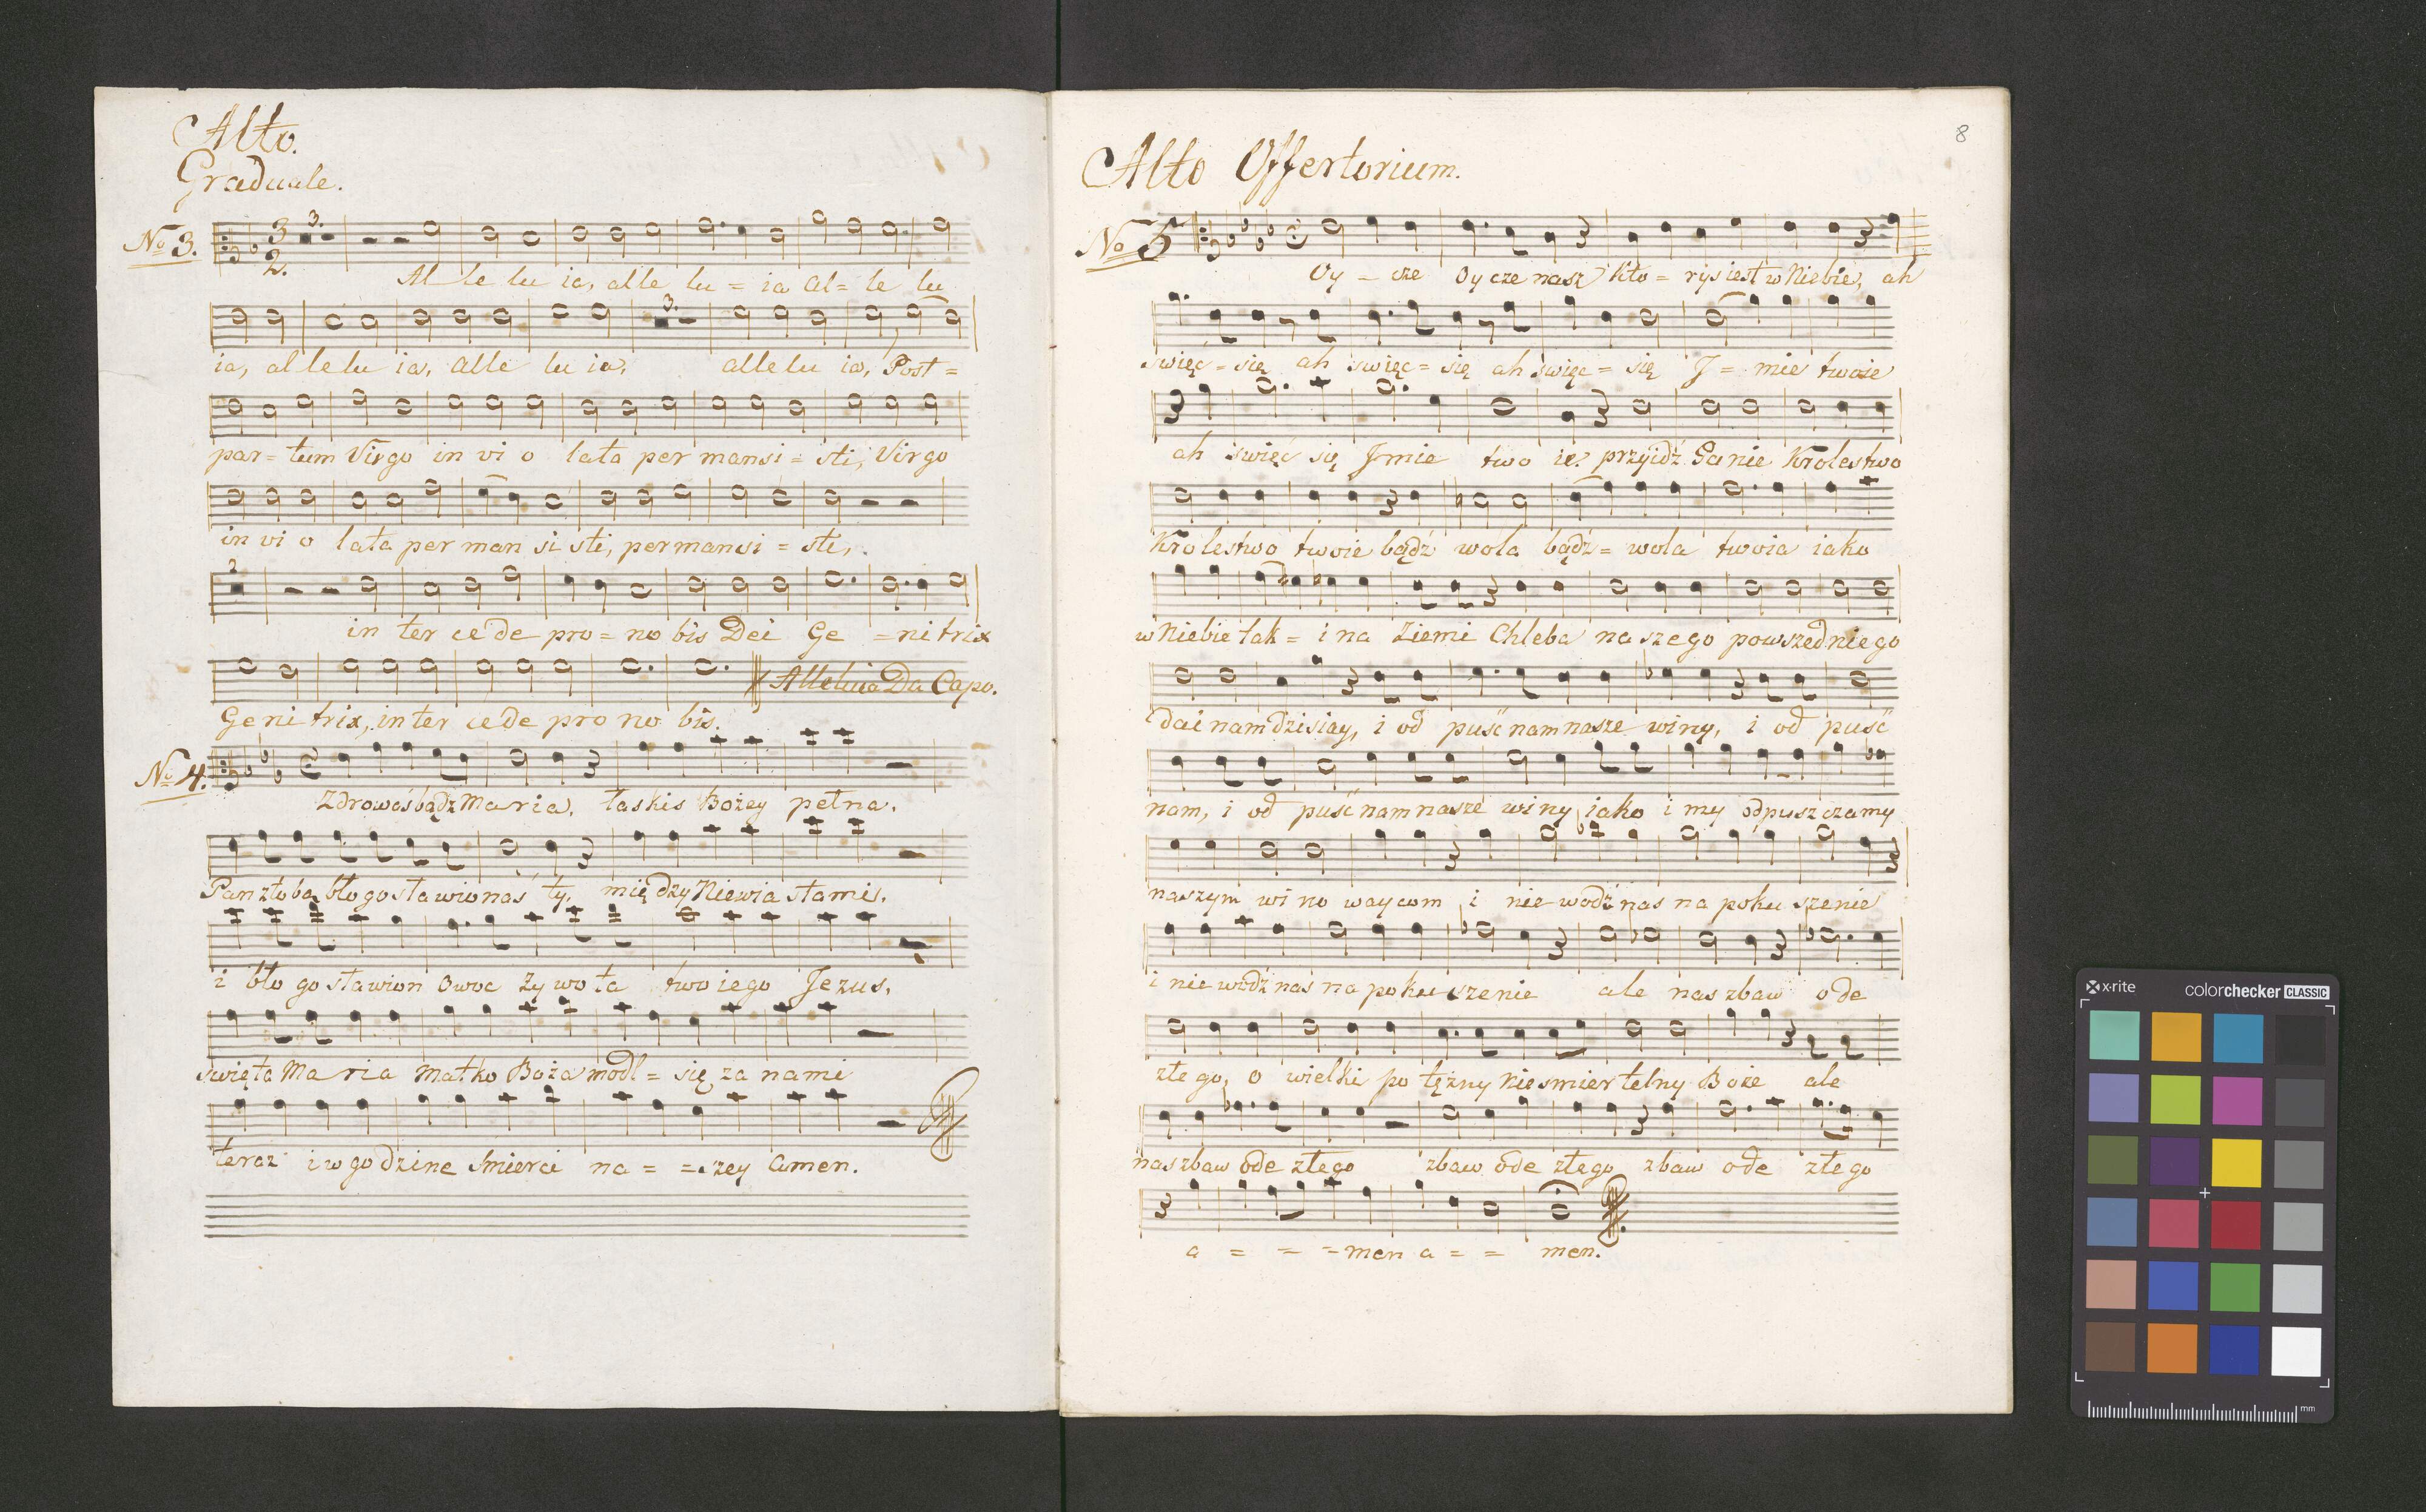 Alto.
Graduale.
No 3.
3
2.
3.
Al le lu ia, alle lu = ia al = le lu
3.
ia, al le lu ia, alle lu ia, alle lu ia, Post =
par = tum Virgo in vi o lata per mansi = sti, Virgo
in vi o lata per man si sti, per mansi = sti,
2
in ter ce de pro = no bis Dei Ge = ni trix
Alleluia Da Capo.
Ge ni trix, in ter ce de pro no bis.
No 4.
Zdrowaś bądz Maria, łaskis Bożey pełna.
Pan ztobą błogosławionaś ty, między Niewia stamis.
i bło go sławion owoc Zy wo ta two iego Jezus.
święta Ma ria Matko Boża módl = się za nami
teraz i w go dzine śmierci na = = szey Amen.
8
Alto Offertorium.
No 5
Oy = cze Oy cze nasz któ = ryś iest w Niebie, ah
święć = się ah święć = się ah święć = się J = mie twoie
ah święć się Jmie two ie. przyidź Panie Krolestwo
Krolestwo twoie bądź wola bądź = wola twoia iako
w Niebie tak = i na Ziemi Chleba na szego powszedniego
dai nam dzisiay, i od puść nam nasze winy, i od puść
nam, i od puść nam nasze winy iako i my odpusz czamy
naszym wi no waycom i nie wodź nas na poku szenie
i nie wodź nas na poku szenie ale nas zbaw o de
złe go, o wielki po tężny Nieśmiertelny Boże ale
nas zbaw ode złego zbaw ode złego zbaw ode złego
a = = = men a = = men.
x-rite
colorchecker CLASSIC
mm